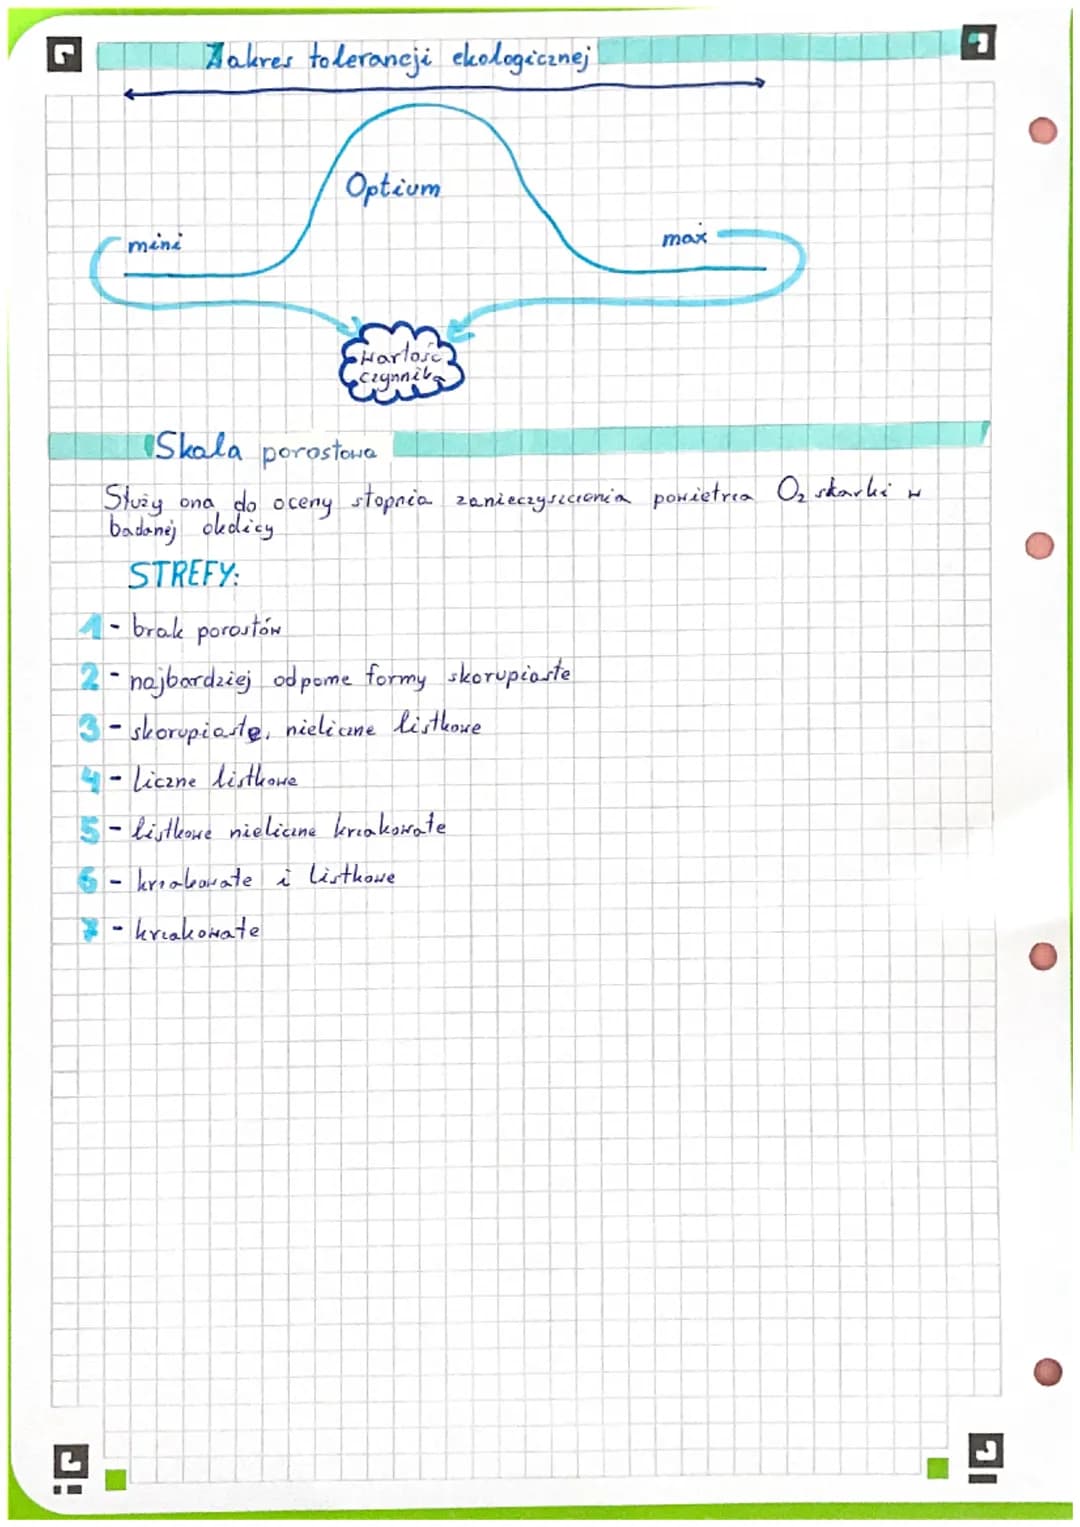 Zakres tolerancji ekologicznej
Optium
mini
max
Wartość
czynnika
Skala porostowa
Służy ona do oceny stopnia zanieczyszczenia powietrza O₂ skarki w
badanej okolicy
STREFY:
1 - brak porostów
2 - najbardziej odporne formy skorupiaste
3 - skorupiaste, nieliczne listkowe
4 - liczne listkowe
5 - listkowe nieliczne krzakowate
6 - krzakowate i listkowe
7 - krzakowate